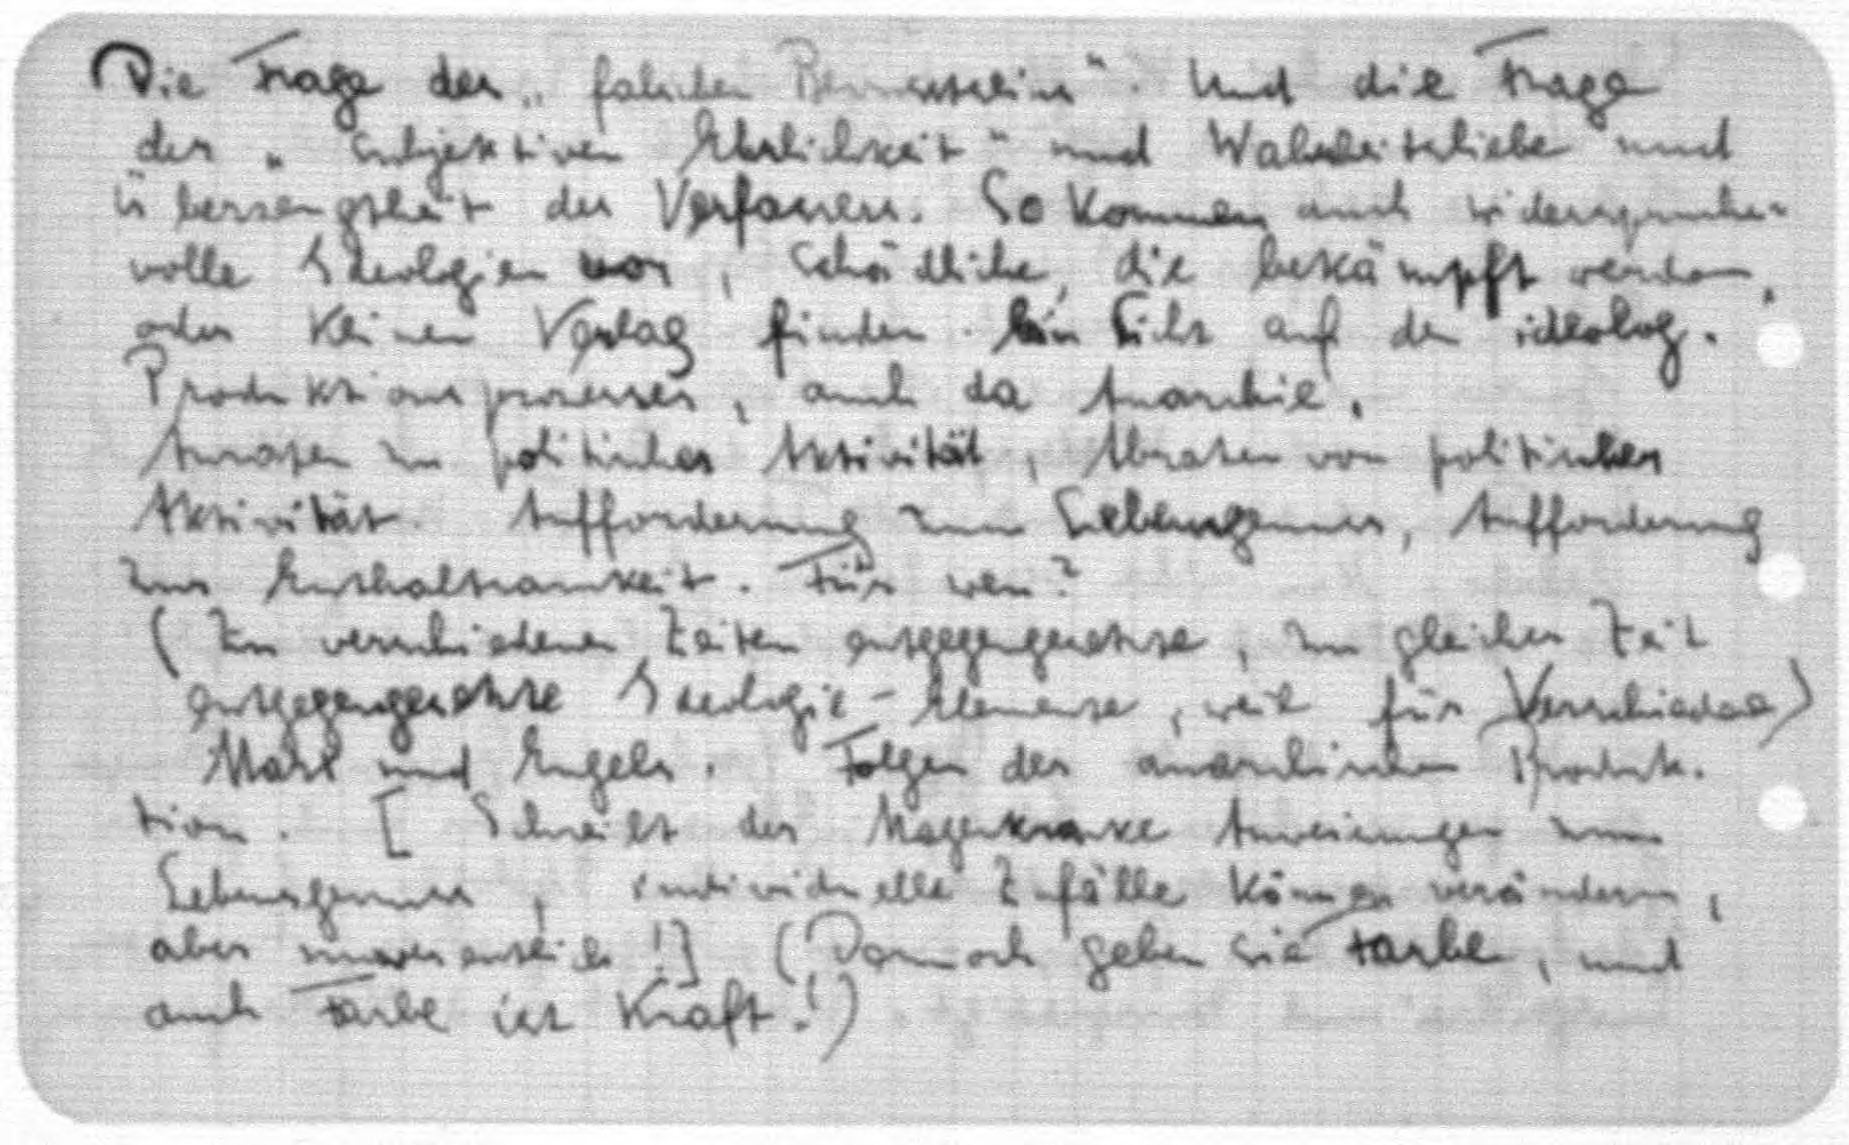 Die Frage des „falschen Bewusstseins". Und die Frage
der „subjektiven Ehrlichkeit" und Wahrheitsliebe und
Überzeugtheit des Verfassers. So kommen auch widerspruchs-
volle Ideologien vor, schädliche, die bekämpft werden,
oder keinen Verlag finden. Hinsicht auf den ideolog.
Produktionsprozesses, auch da Anarchie.
Anraten zu politischer Aktivität, Abraten von politischer
Aktivität. Aufforderung zum Lebensgenuss, Aufforderung
zur Enthaltsamkeit. Für wen?
(Zu verschiedenen Zeiten entgegengesetzte, zu gleicher Zeit
entgegengesetzte Ideologie-Elemente, weil für Verschiedene)
Marx und Engels. Folgen der anarchischen Produk-
tion. [Schreibt der Magenkranke Anweisungen zum
Lebensgenuss, individuelle Zufälle können verändern,
aber !] (Danach geben sie Farbe, und
auch Farbe ist Kraft!)